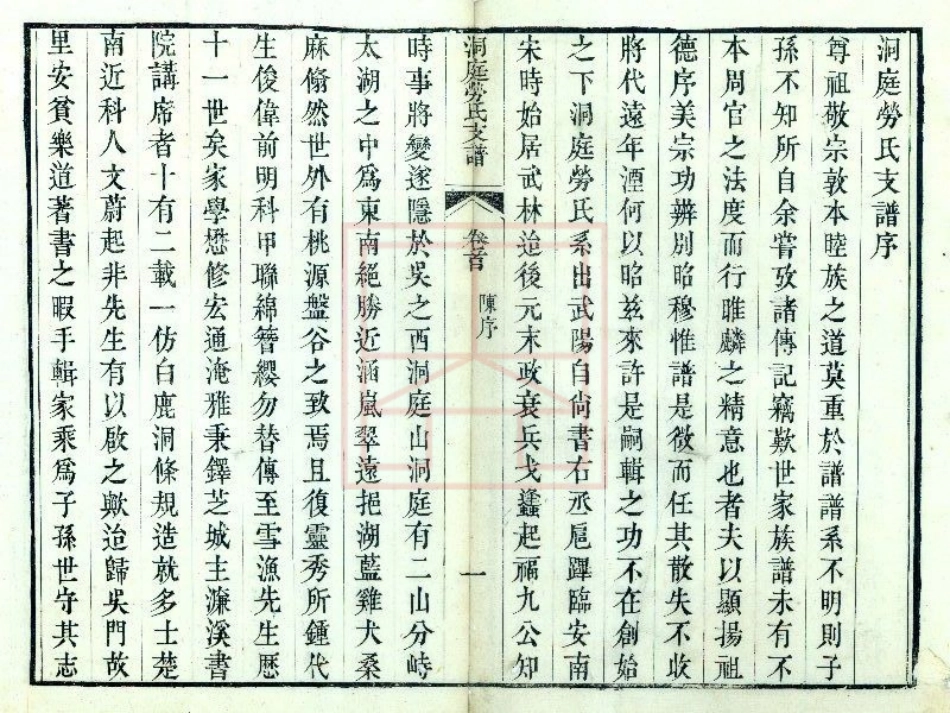 洞庭勞氏支譜序
尊祖敬宗敦本睦族之道莫重於譜譜系不明則子
孫不知所自余嘗攷諸傳記竊歎世家族譜未有不
本周官之法度而行雎麟之精意也者夫以顯揚祖
德序美宗功辨別昭穆惟譜是徵而任其散失不收
將代遠年湮何以昭茲來許是嗣輯之功不在創始
之下洞庭勞氏系出武陽自尚書右丞扈蹕臨安南
宋時始居武林迨後元末政衰兵戈蠭起福九公知
洞庭勞氏支譜
卷首
陳序
一
時事將變遂隱於吳之西洞庭山洞庭有二山分峙
太湖之中爲東南絕勝近涵嵐翠遠挹湖藍雞犬桑
麻翛然世外有桃源盤谷之致焉且復靈秀所鍾代
生俊偉前明科甲聯綿簪纓勿替傳至雪漁先生歷
十一世矣家學懋修宏通淹雅秉鐸芝城主濂溪書
院講席者十有二載一仿白鹿洞條規造就多士楚
南近科人文蔚起非先生有以啟之歟迨歸吳門故
里安貧樂道著書之暇手輯家乘爲子孫世守其志